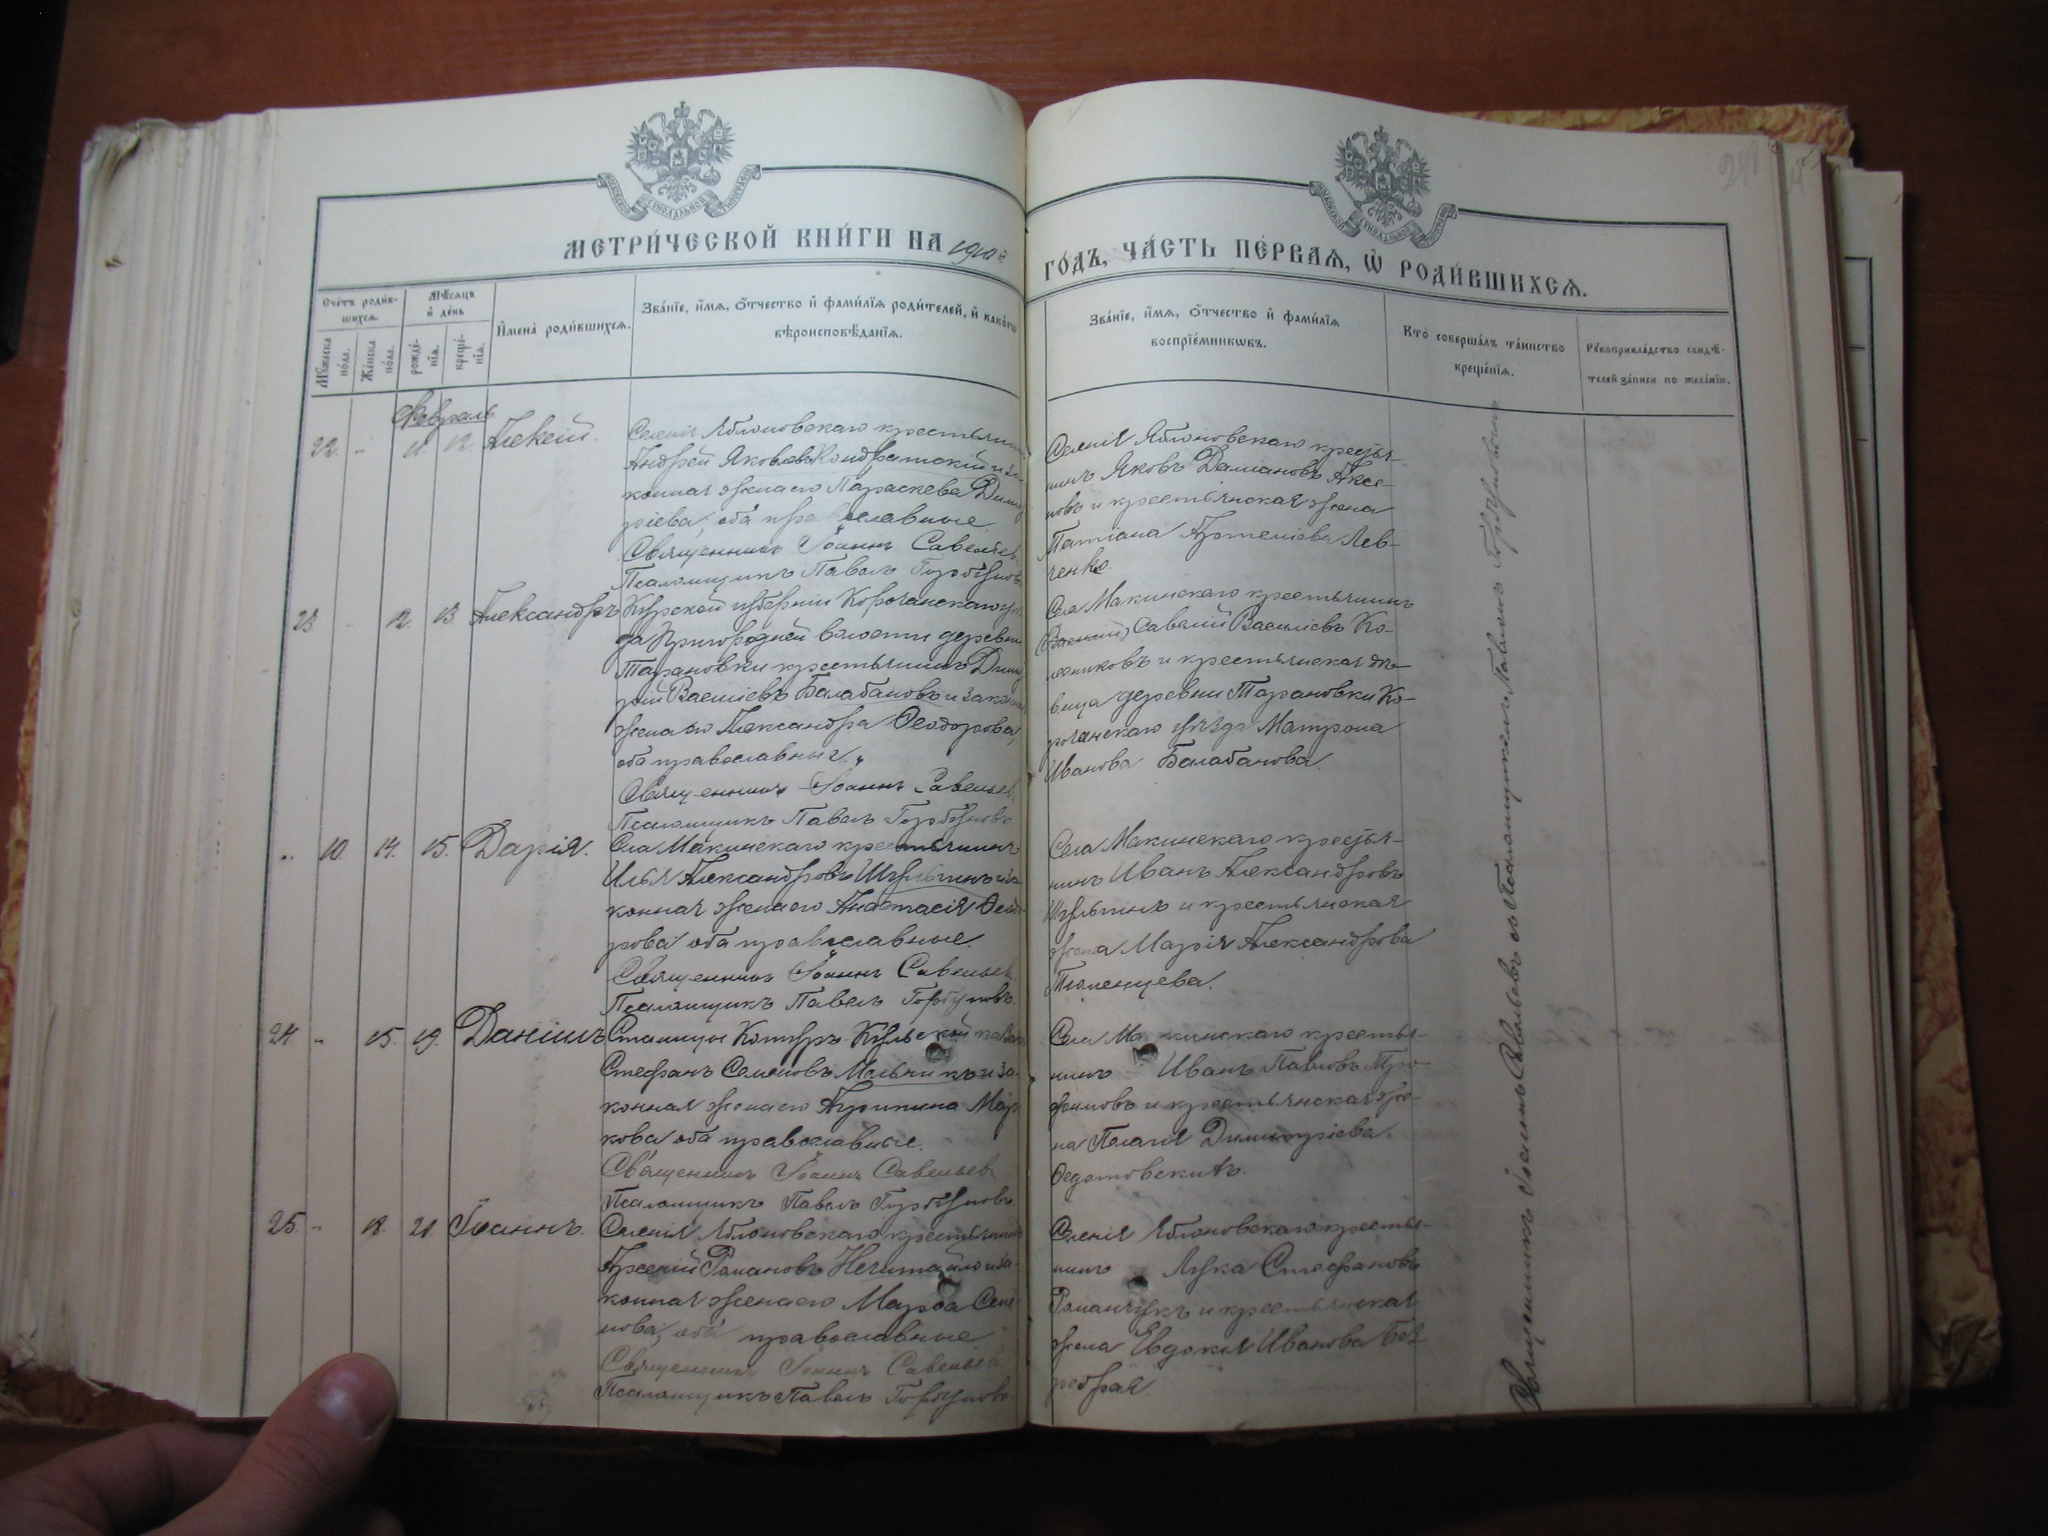 МЕТРИ́ЧЕСКОЙ КНИ́ГИ НА 1910й
ГО́ДЪ, ЧА́СТЬ ПЕ́РВАѦ, Ѡ РОДИ́ВШИХСѦ.
Сче́тъ роди́в-
шихсѧ.
Мѣ́сѧцъ
и де́нь
Мꙋ́жеска
по́ла.
Же́нска
по́ла.
рожде́-
нїѧ.
креще́-
нїѧ.
И́мена̀ роди́вшихсѧ.
Зва́нїе, и́мѧ, о́тчество и фами́лїѧ роди́телей, и како́гѡ
вѣроисповѣ́данїѧ.
Зва́нїе, и́мѧ, о́тчество и фами́лїѧ
воспрїе́мникѡвъ.
Кто̀ соверша́лъ та́инство
креще́нїѧ.
Рꙋкоприкла́дство свидѣ́-
телей за́писи по жела́нїю.
Февраль
22. - 11. 12. Алексій.
Селенія Яблоновскаго крестьянинъ
Андрей Яковлевъ Кондратскій и за-
конная жена его Параскева Димит
ріева, оба православные.
Священникъ Іоаннъ Савельев
Псаломщикъ Павелъ Горбуновъ
Селенія Яблоновскаго кресть-
янинъ Яковъ Даміановъ Аксе-
новъ и крестьянская жена
Татіана Артеміева Лев-
ченко.
23 - 12. 13. Александръ
Курской губерніи Корочанскаго уѣз
да Пригородней волости деревни
Тарановки крестьянинъ Дими
рій Василіевъ Балабановъ и законная
жена его Александра Ѳеодорова,
оба православные.
Священникъ Іоаннъ Савельев
Псаломщикъ Павелъ Горбуновъ
Села Макинскаго крестьянинъ
(Василій) Савелий Василіевъ Ко-
лесниковъ и крестьянская дѣ-
вица деревни Тарановки Ко-
рочанскаго уѣзда Матрона
Иванова Балабанова.
„ 10. 14. 15. Дарія.
Села Макинскаго крестьянинъ
Илья Александровъ Шульгинъ и за
конная жена его Анастасія Ѳеодо-
рова оба православные.
Священникъ Іоаннъ Савельев
Псаломщикъ Павелъ Горбуновъ
Села Макинскаго крестья-
нинъ Иванъ Александровъ
Шульгинъ и крестьянская
жена Марія Александрова
Тюменцева.
24 - 15. 19. Даніилъ
Станицы Копуръ-Кульской казакъ
Стефанъ Семеновъ Мельникъ и за-
конная жена его Агрипина Мар
кова оба православные.
Священникъ Іоаннъ Савельев
Псаломщикъ Павелъ Горбуновъ
Села Макинскаго крестья-
нинъ Иванъ Павловъ Тро-
фимовъ и крестьянская же-
на Пелагія Димитріева
25. - 18. 21. Іоаннъ.
Селенія Яблоновскаго крестьянинъ
Арсеній Романовъ Нечитайло и за-
конная жена его Марѳа Семе-
нова, оба православные
Священникъ Іоаннъ Савельев
Псаломщикъ Павелъ Горбуновъ
Селенія Яблоновскаго крестья-
нинъ Лука Стефановъ
Романчукъ и крестьянская
жена Евдокія Иванова Без
ребрая.
Священникъ Іоаннъ Савельевъ съ Псаломщикомъ Павломъ Горбуновымъ